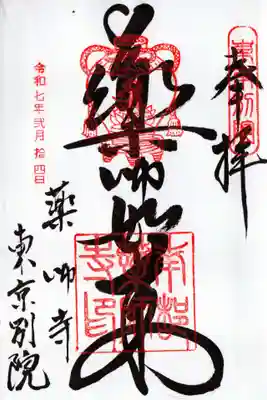 奉拝
薬師如来
薬師寺
東京別院
令和七年弐月拾四日